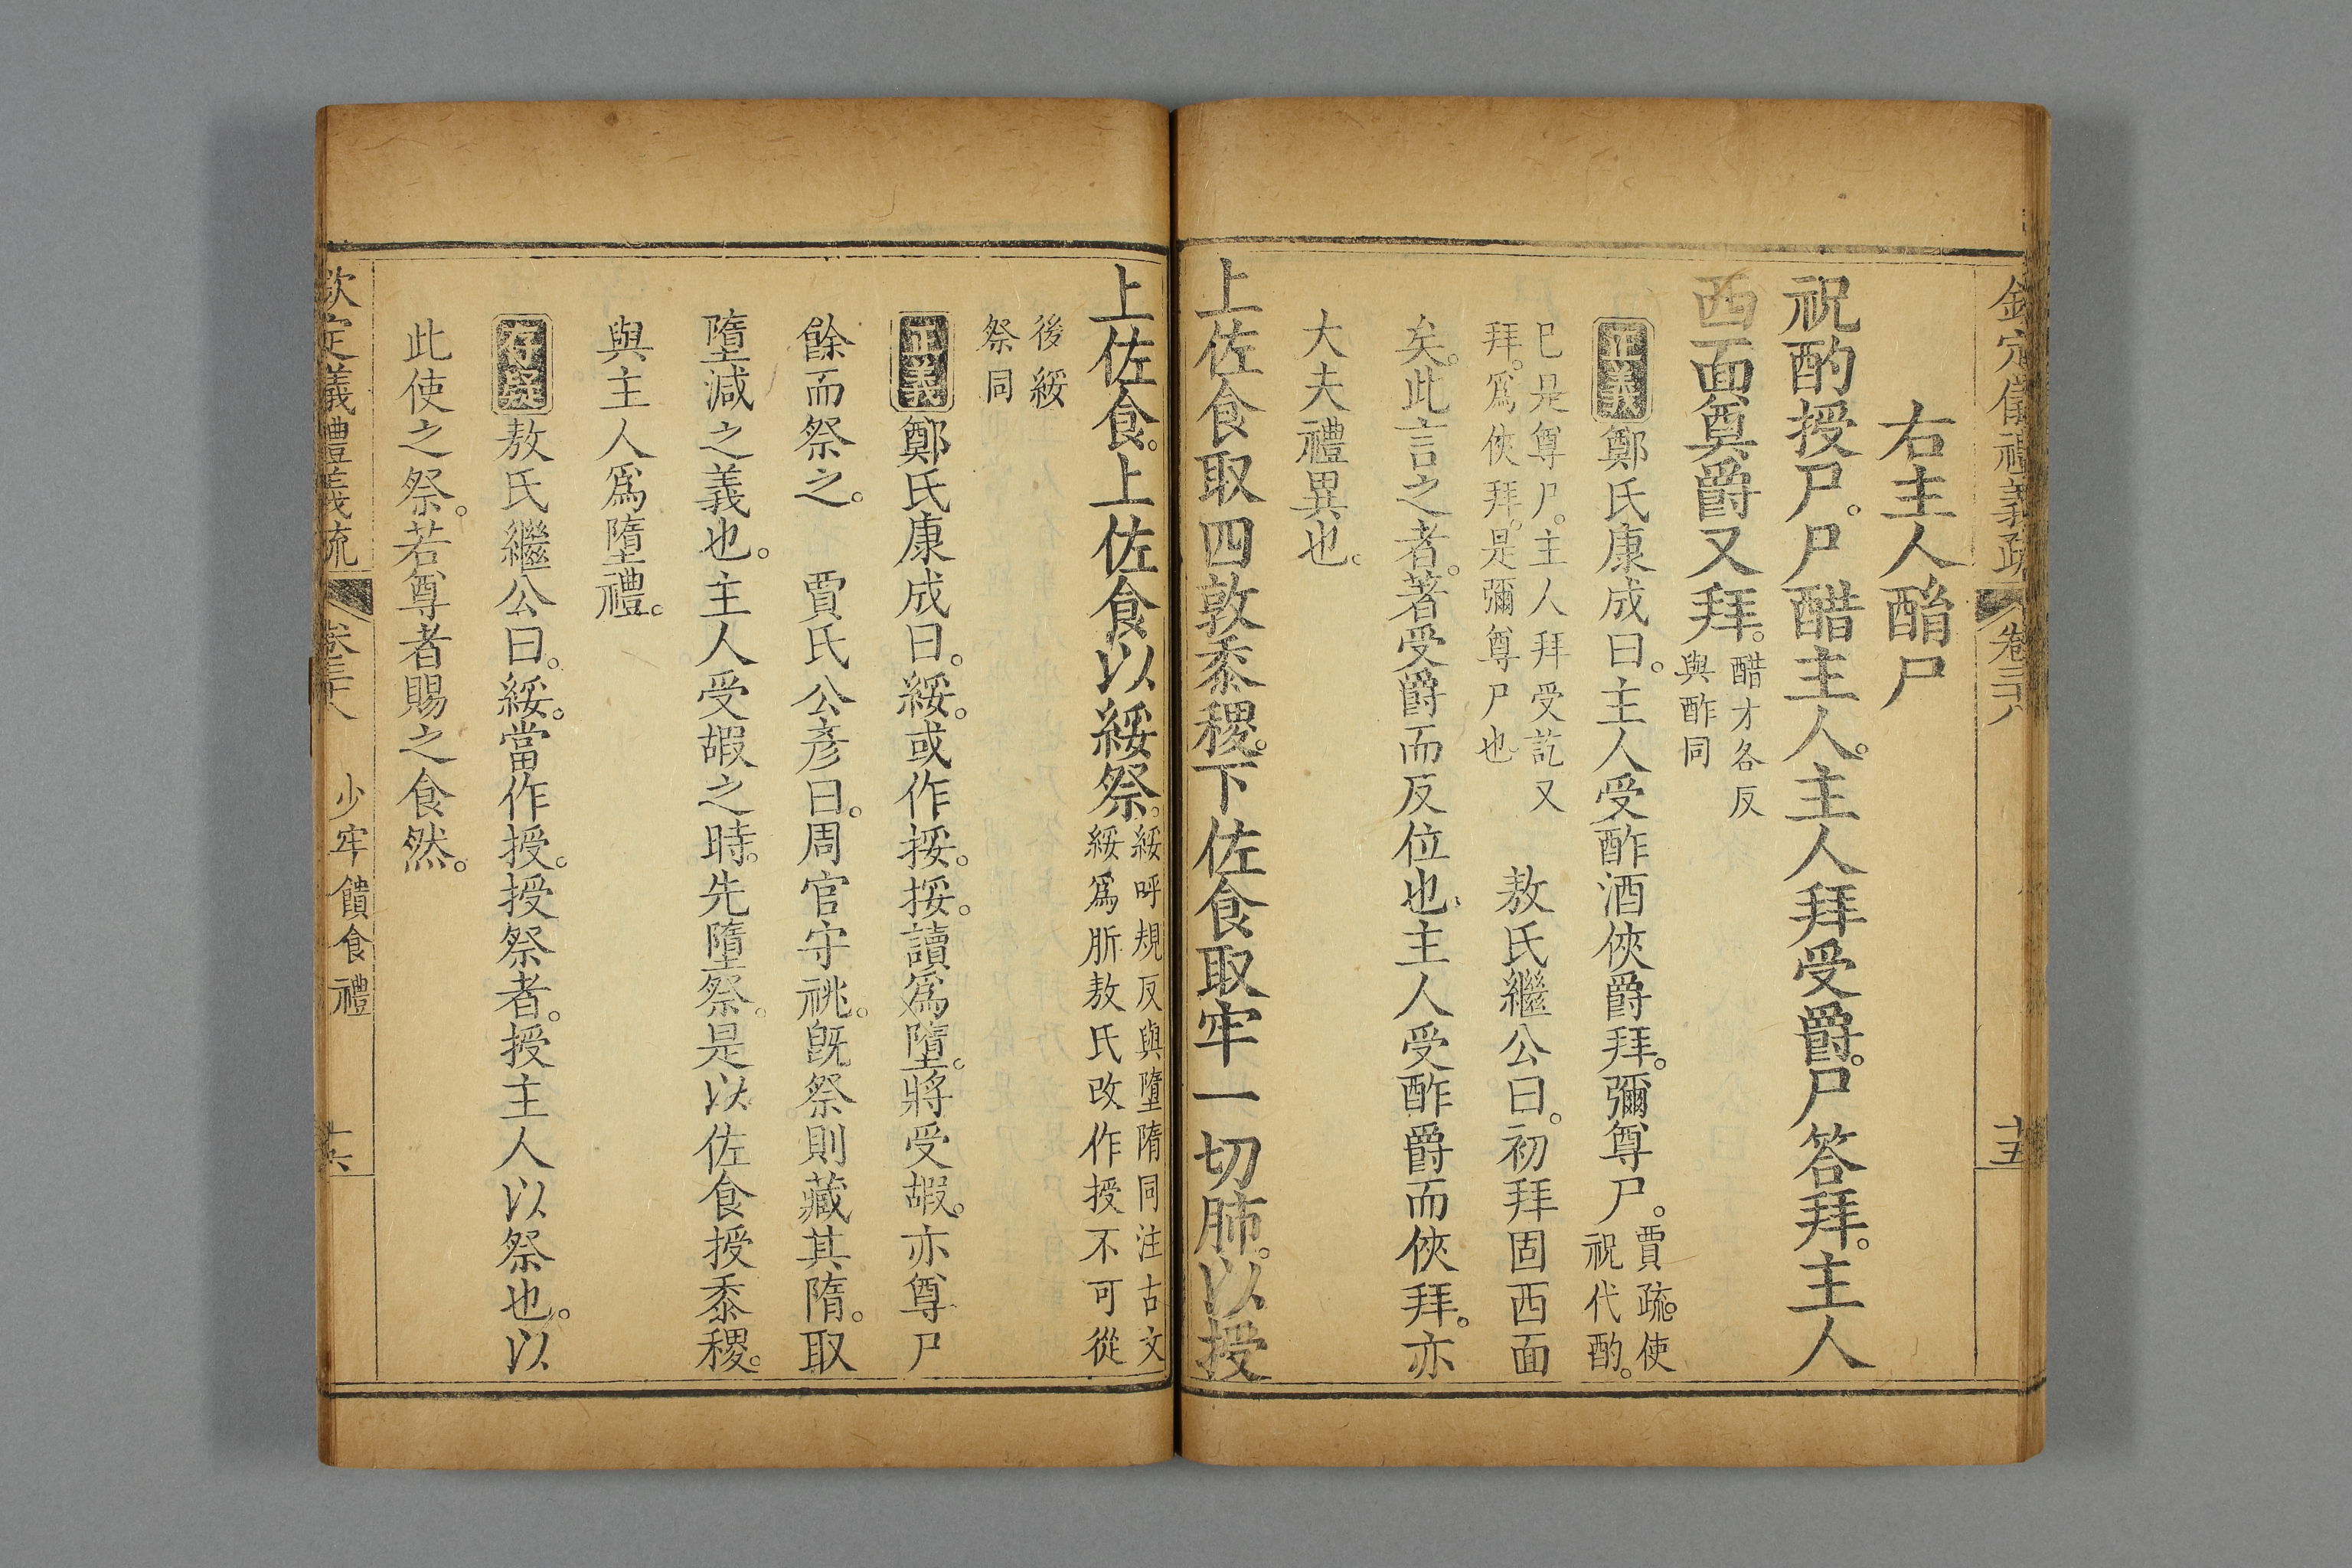 欽定儀禮義疏 卷三十八 十五
右主人酳尸
祝酌授尸。尸醋主人。主人拜受爵。尸答拜。主人
西面奠爵又拜。醋才各反
與酢同
正義 鄭氏康成曰。主人受酢酒俠爵拜。彌尊尸。賈疏。使
祝代酌。
已是尊尸。主人拜受訖又
拜。爲俠拜。是彌尊尸也 敖氏繼公曰。初拜固西面
矣。此言之者。著受爵而反位也。主人受酢爵而俠拜。亦
大夫禮異也。
上佐食取四敦黍稷。下佐食取牢一切肺。以授
上佐食。上佐食以綏祭。綏呼規反與墮隋同注古文
綏爲肵敖氏改作授不可從
後綏
祭同
正義 鄭氏康成曰。綏。或作挼。挼。讀爲墮。將受嘏。亦尊尸
餘而祭之。 賈氏公彥曰。周官守祧。旣祭則藏其隋。取
墮減之義也。主人受嘏之時。先墮祭。是以佐食授黍稷。
與主人爲墮禮。
存疑 敖氏繼公曰。綏。當作授。授祭者。授主人以祭也。以
此使之祭。若尊者賜之食然。
欽定儀禮義疏 卷三十八 少牢饋食禮 十六